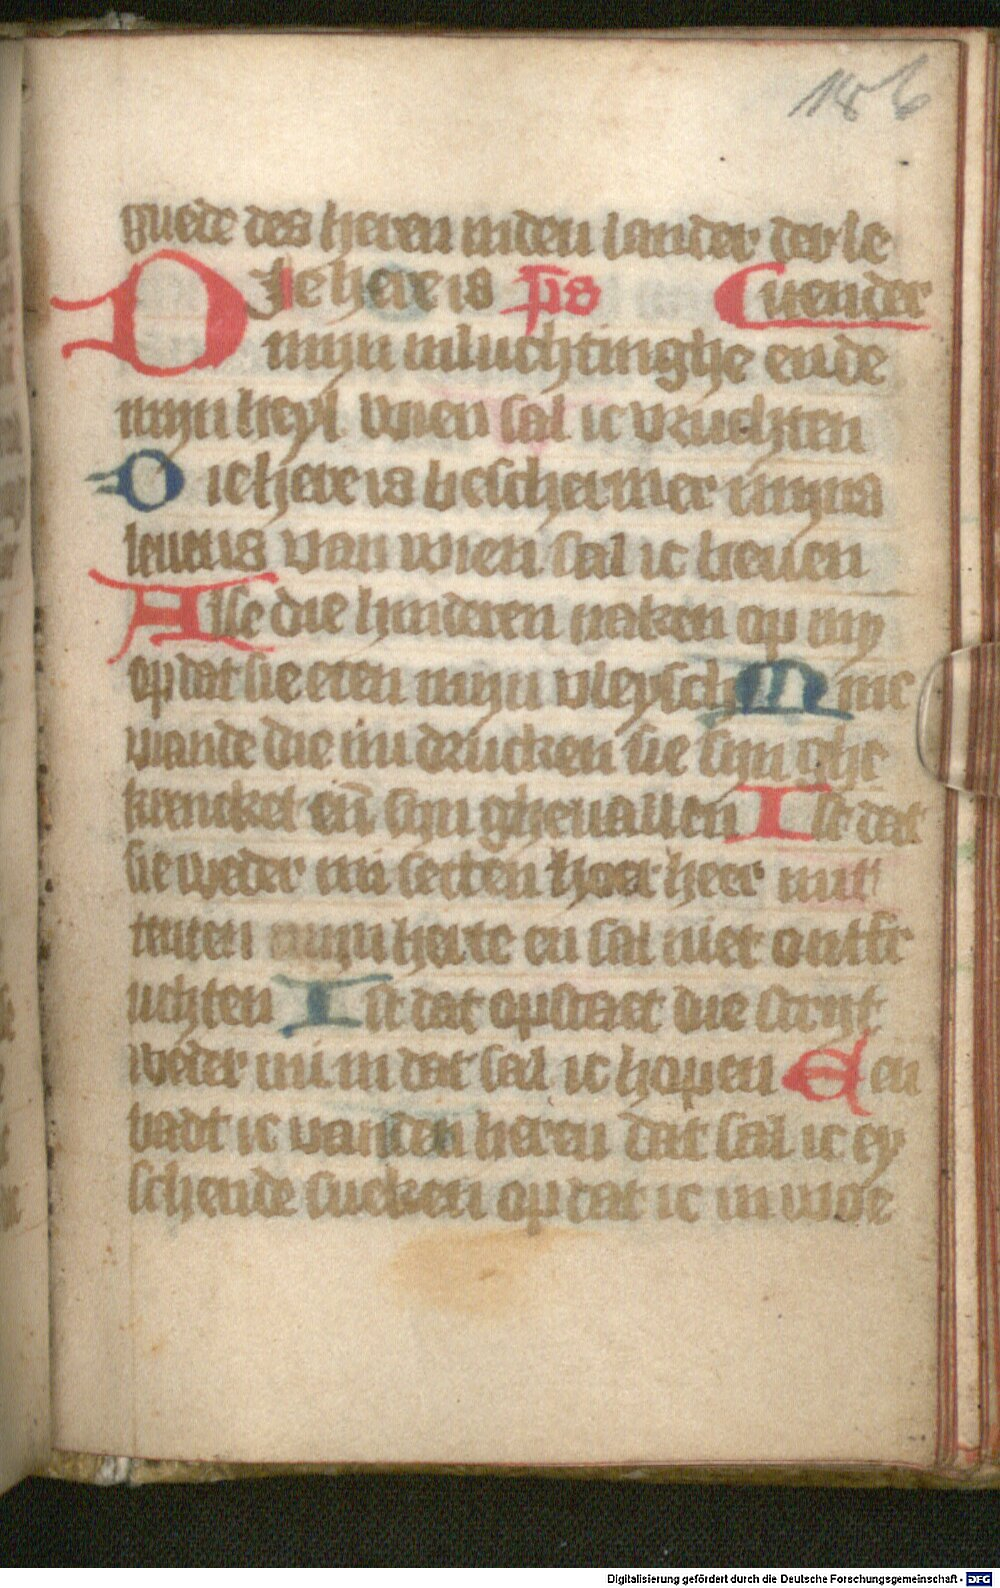 186
guede des heren in den lander der le
DJe here is ps uender
mijn inluchtinghe ende
mijn heyl Wien sal ic vruchten
Die here is bescheirmer mijns
leuens van wien sal ic beuen
Alse die hinderen naken op my
op dat sie eten mijn vleysch Mine
viande die mi drucken sie sijn ghe
krencket eñ sijn gheuallen Ist dat
sie weder mi setten hoer heer mit
tenten mijn herte en sal niet ontfr
uchten Ist dat opstaet die strijt
weder mi in dat sal ic hopen Een
badt ic van den heren dat sal ic ey
schende sueken op dat ic in woe
Digitalisierung gefördert durch die Deutsche Forschungsgemeinschaft - DFG